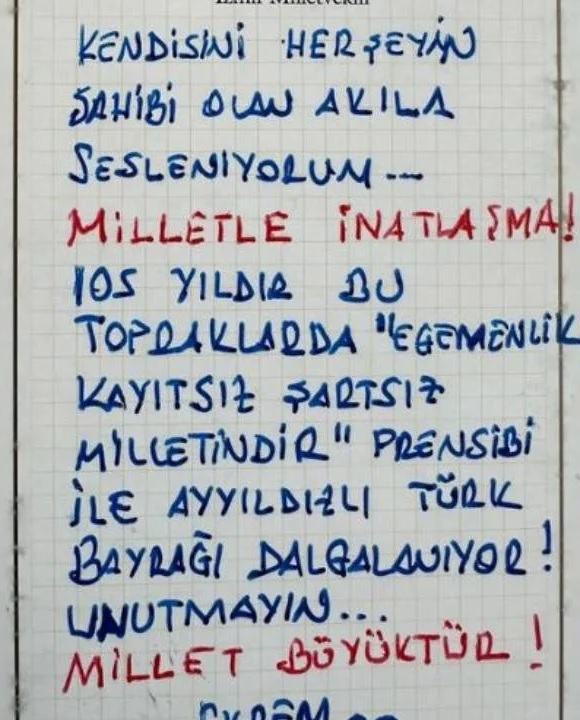 İzmir Milletvekili
KENDİSİNİ HER ŞEYİN
SAHİBİ OLAN AKILA
SESLENİYORUM...
MİLLETLE İNATLAŞMA!
105 YILDIR BU
TOPRAKLARDA "EGEMENLİK
KAYITSIZ ŞARTSIZ
MİLLETİNDİR" PRENSİBİ
İLE AYYILDIZLI TÜRK
BAYRAĞI DALGALANIYOR!
UNUTMAYIN...
MİLLET BÜYÜKTÜR!